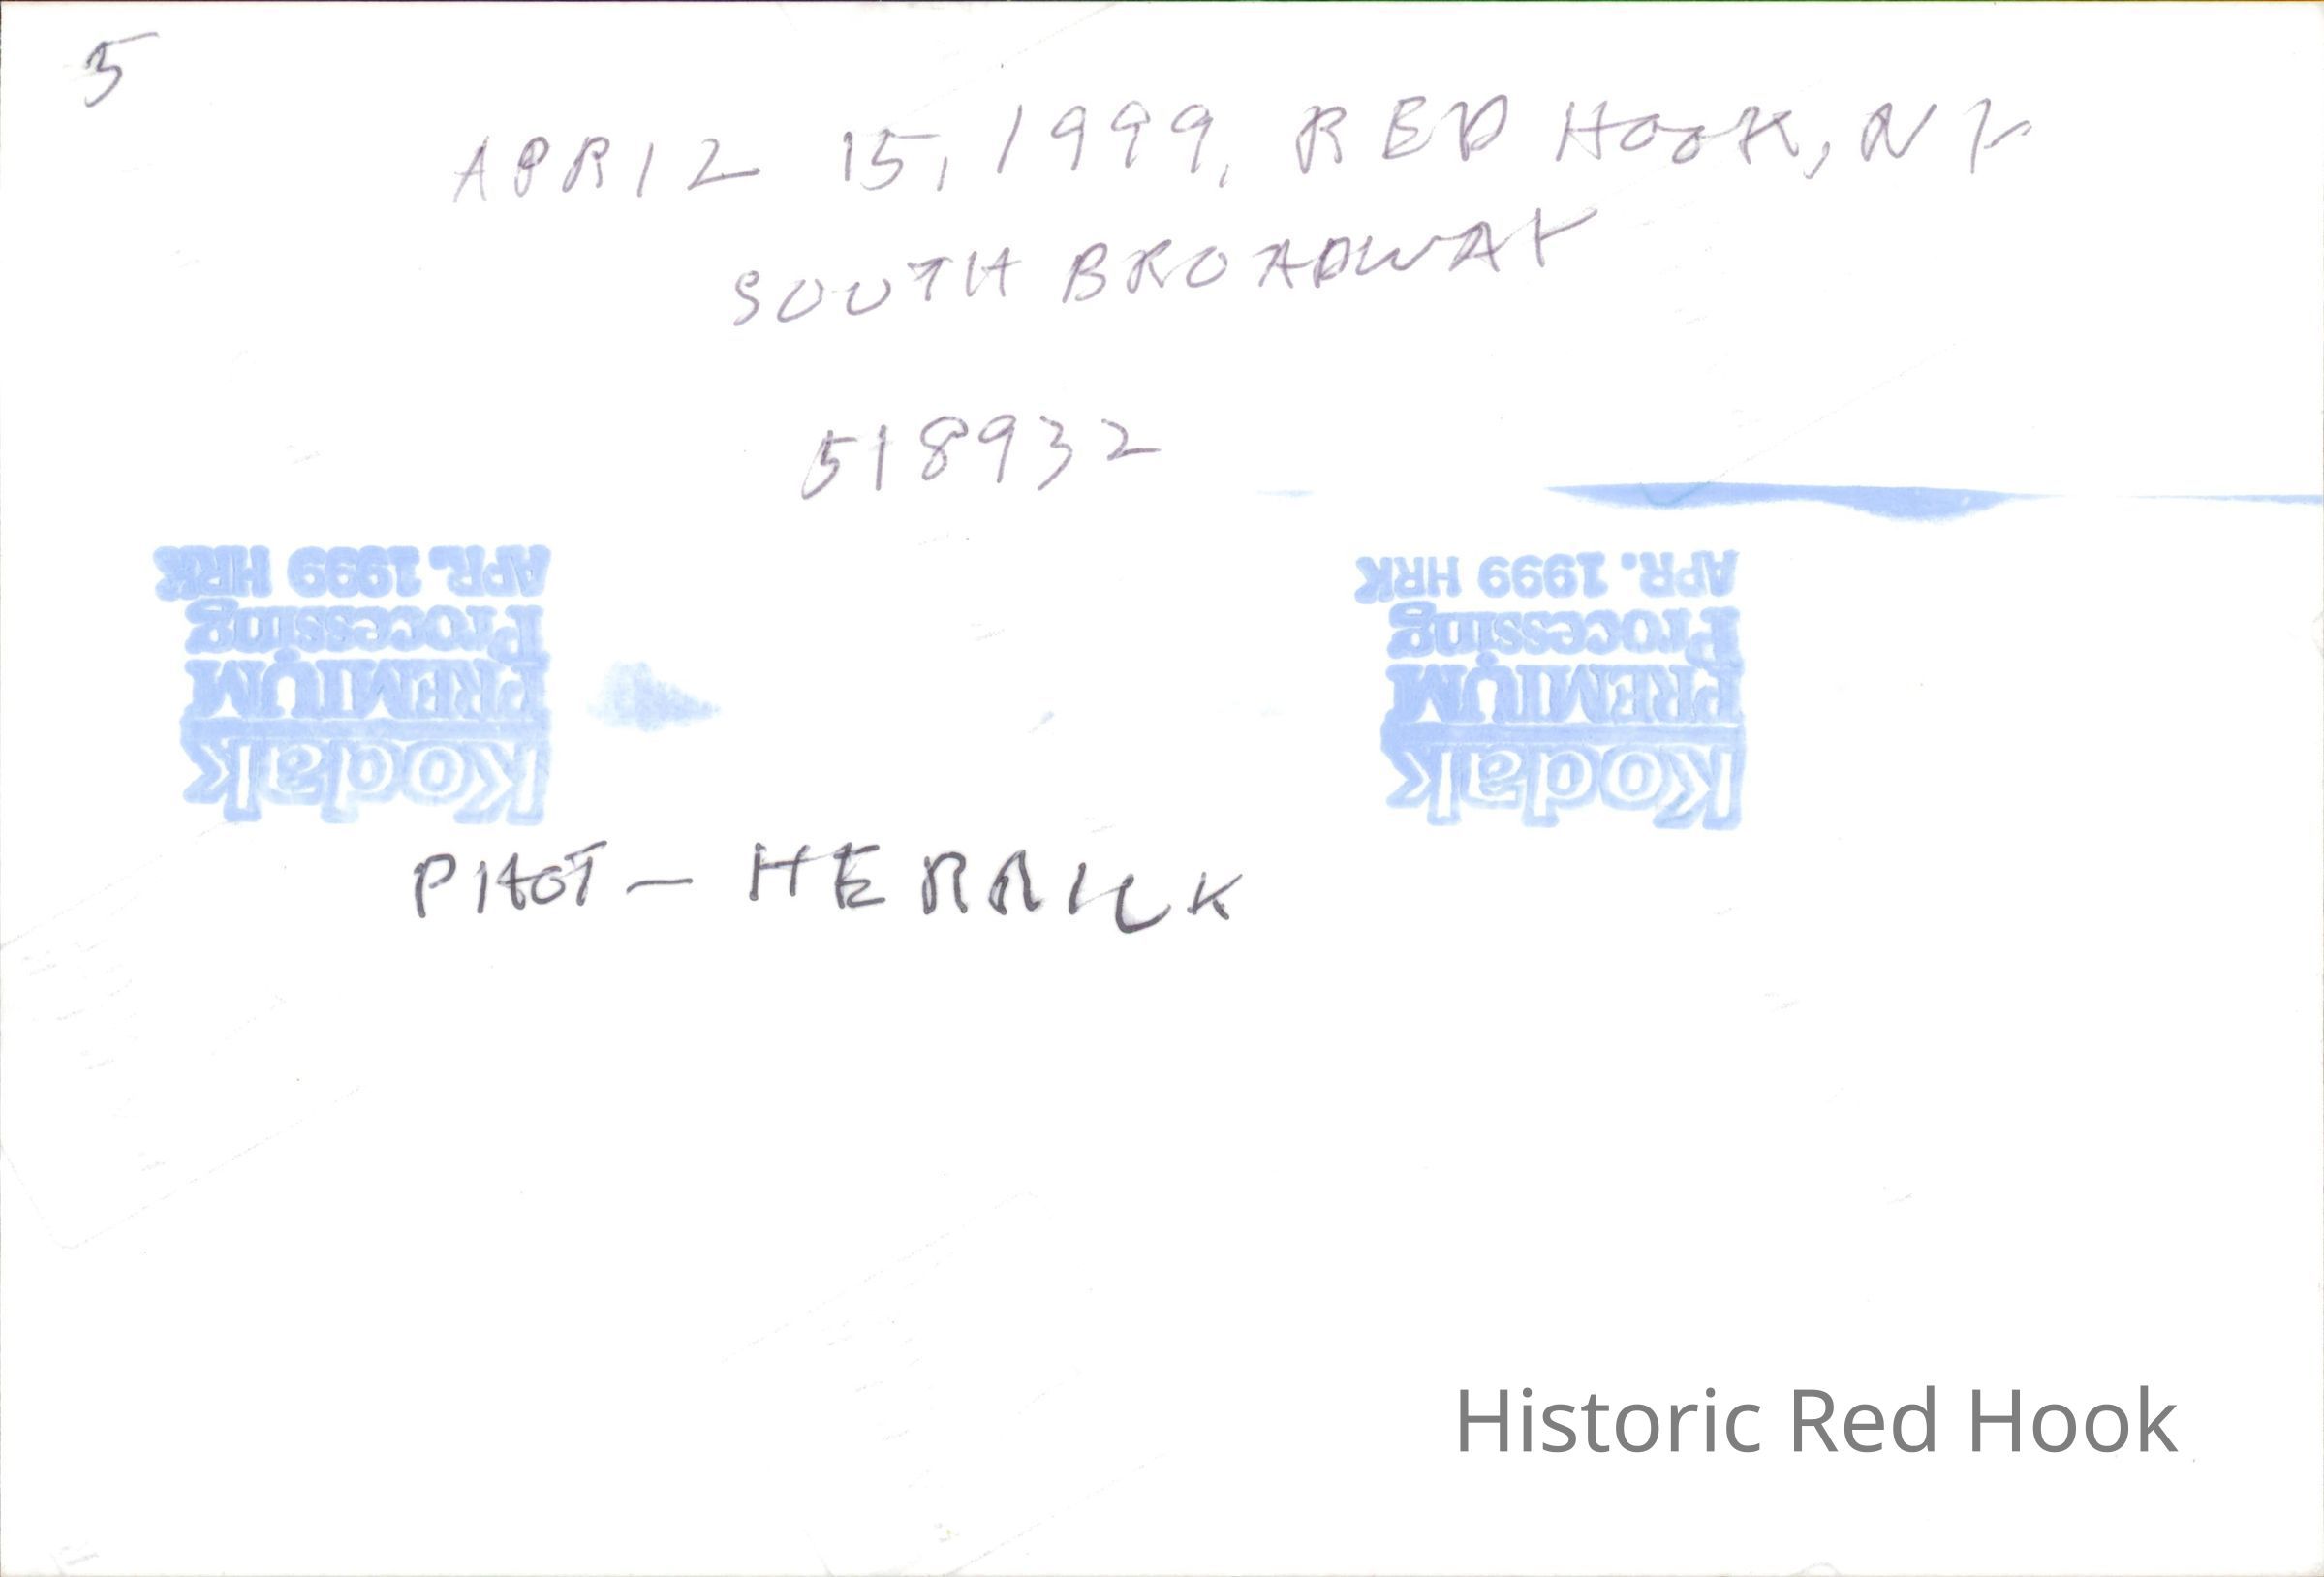 5
APRIL 15, 1999, RED HOOK, NY
SOUTH BROADWAY
518932
APR. 1999 HRK
Processing
PREMIUM
Kodak
APR. 1999 HRK
Processing
PREMIUM
Kodak
PHOT – HERRICK
Historic Red Hook